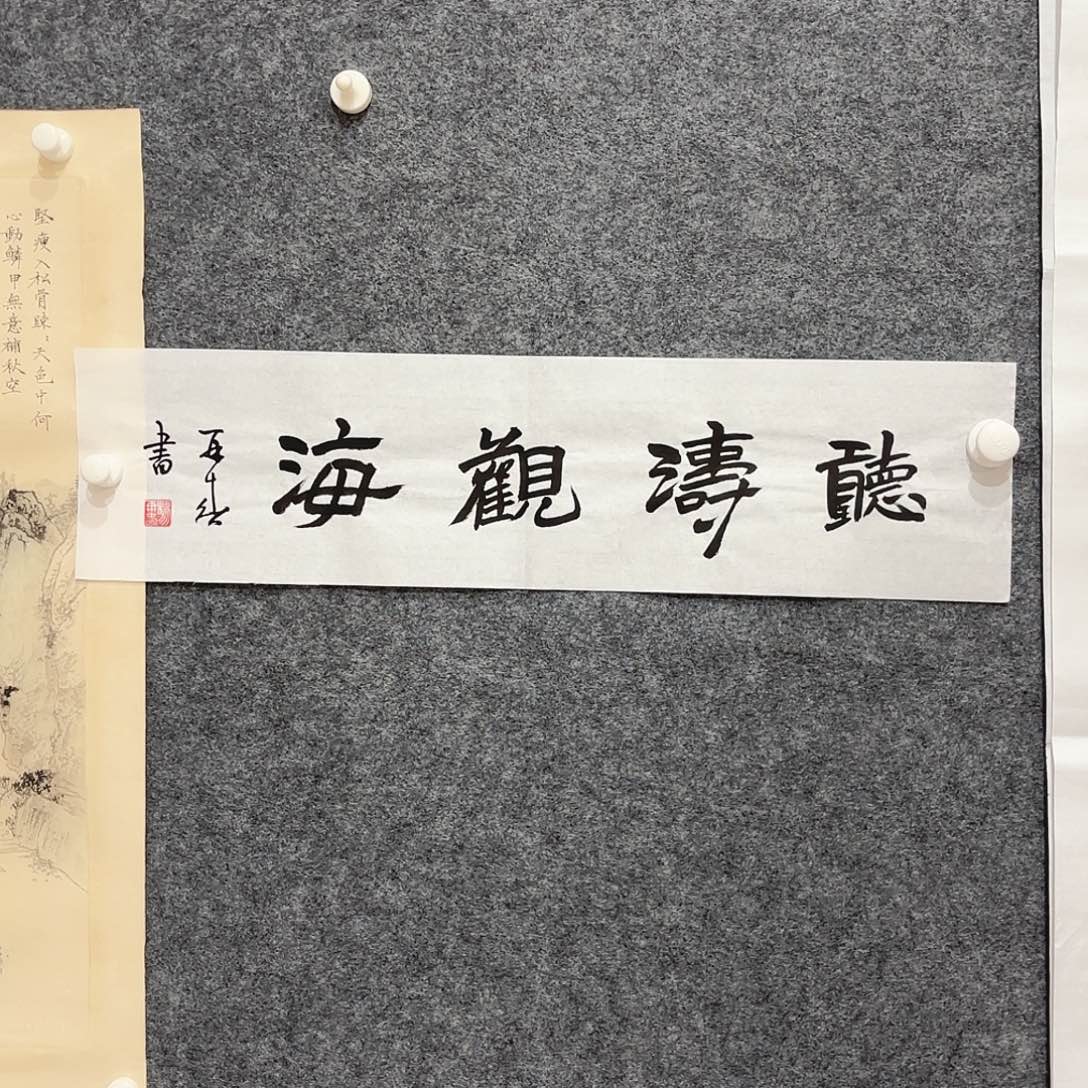 聽濤觀海
書
堅瘦入松骨綠天色中何
心動鱗甲無意補秋空